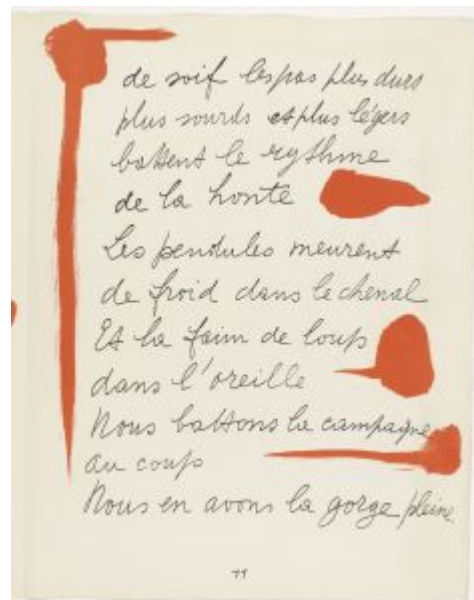 de soif les pas plus durs
plus sourds et plus légers
battent le rythme
de la honte
Les pendules meurent
de froid dans le chenal
Et la faim de loup
dans l'oreille
Nous battons la campagne
au coup
Nous en avons la gorge pleine